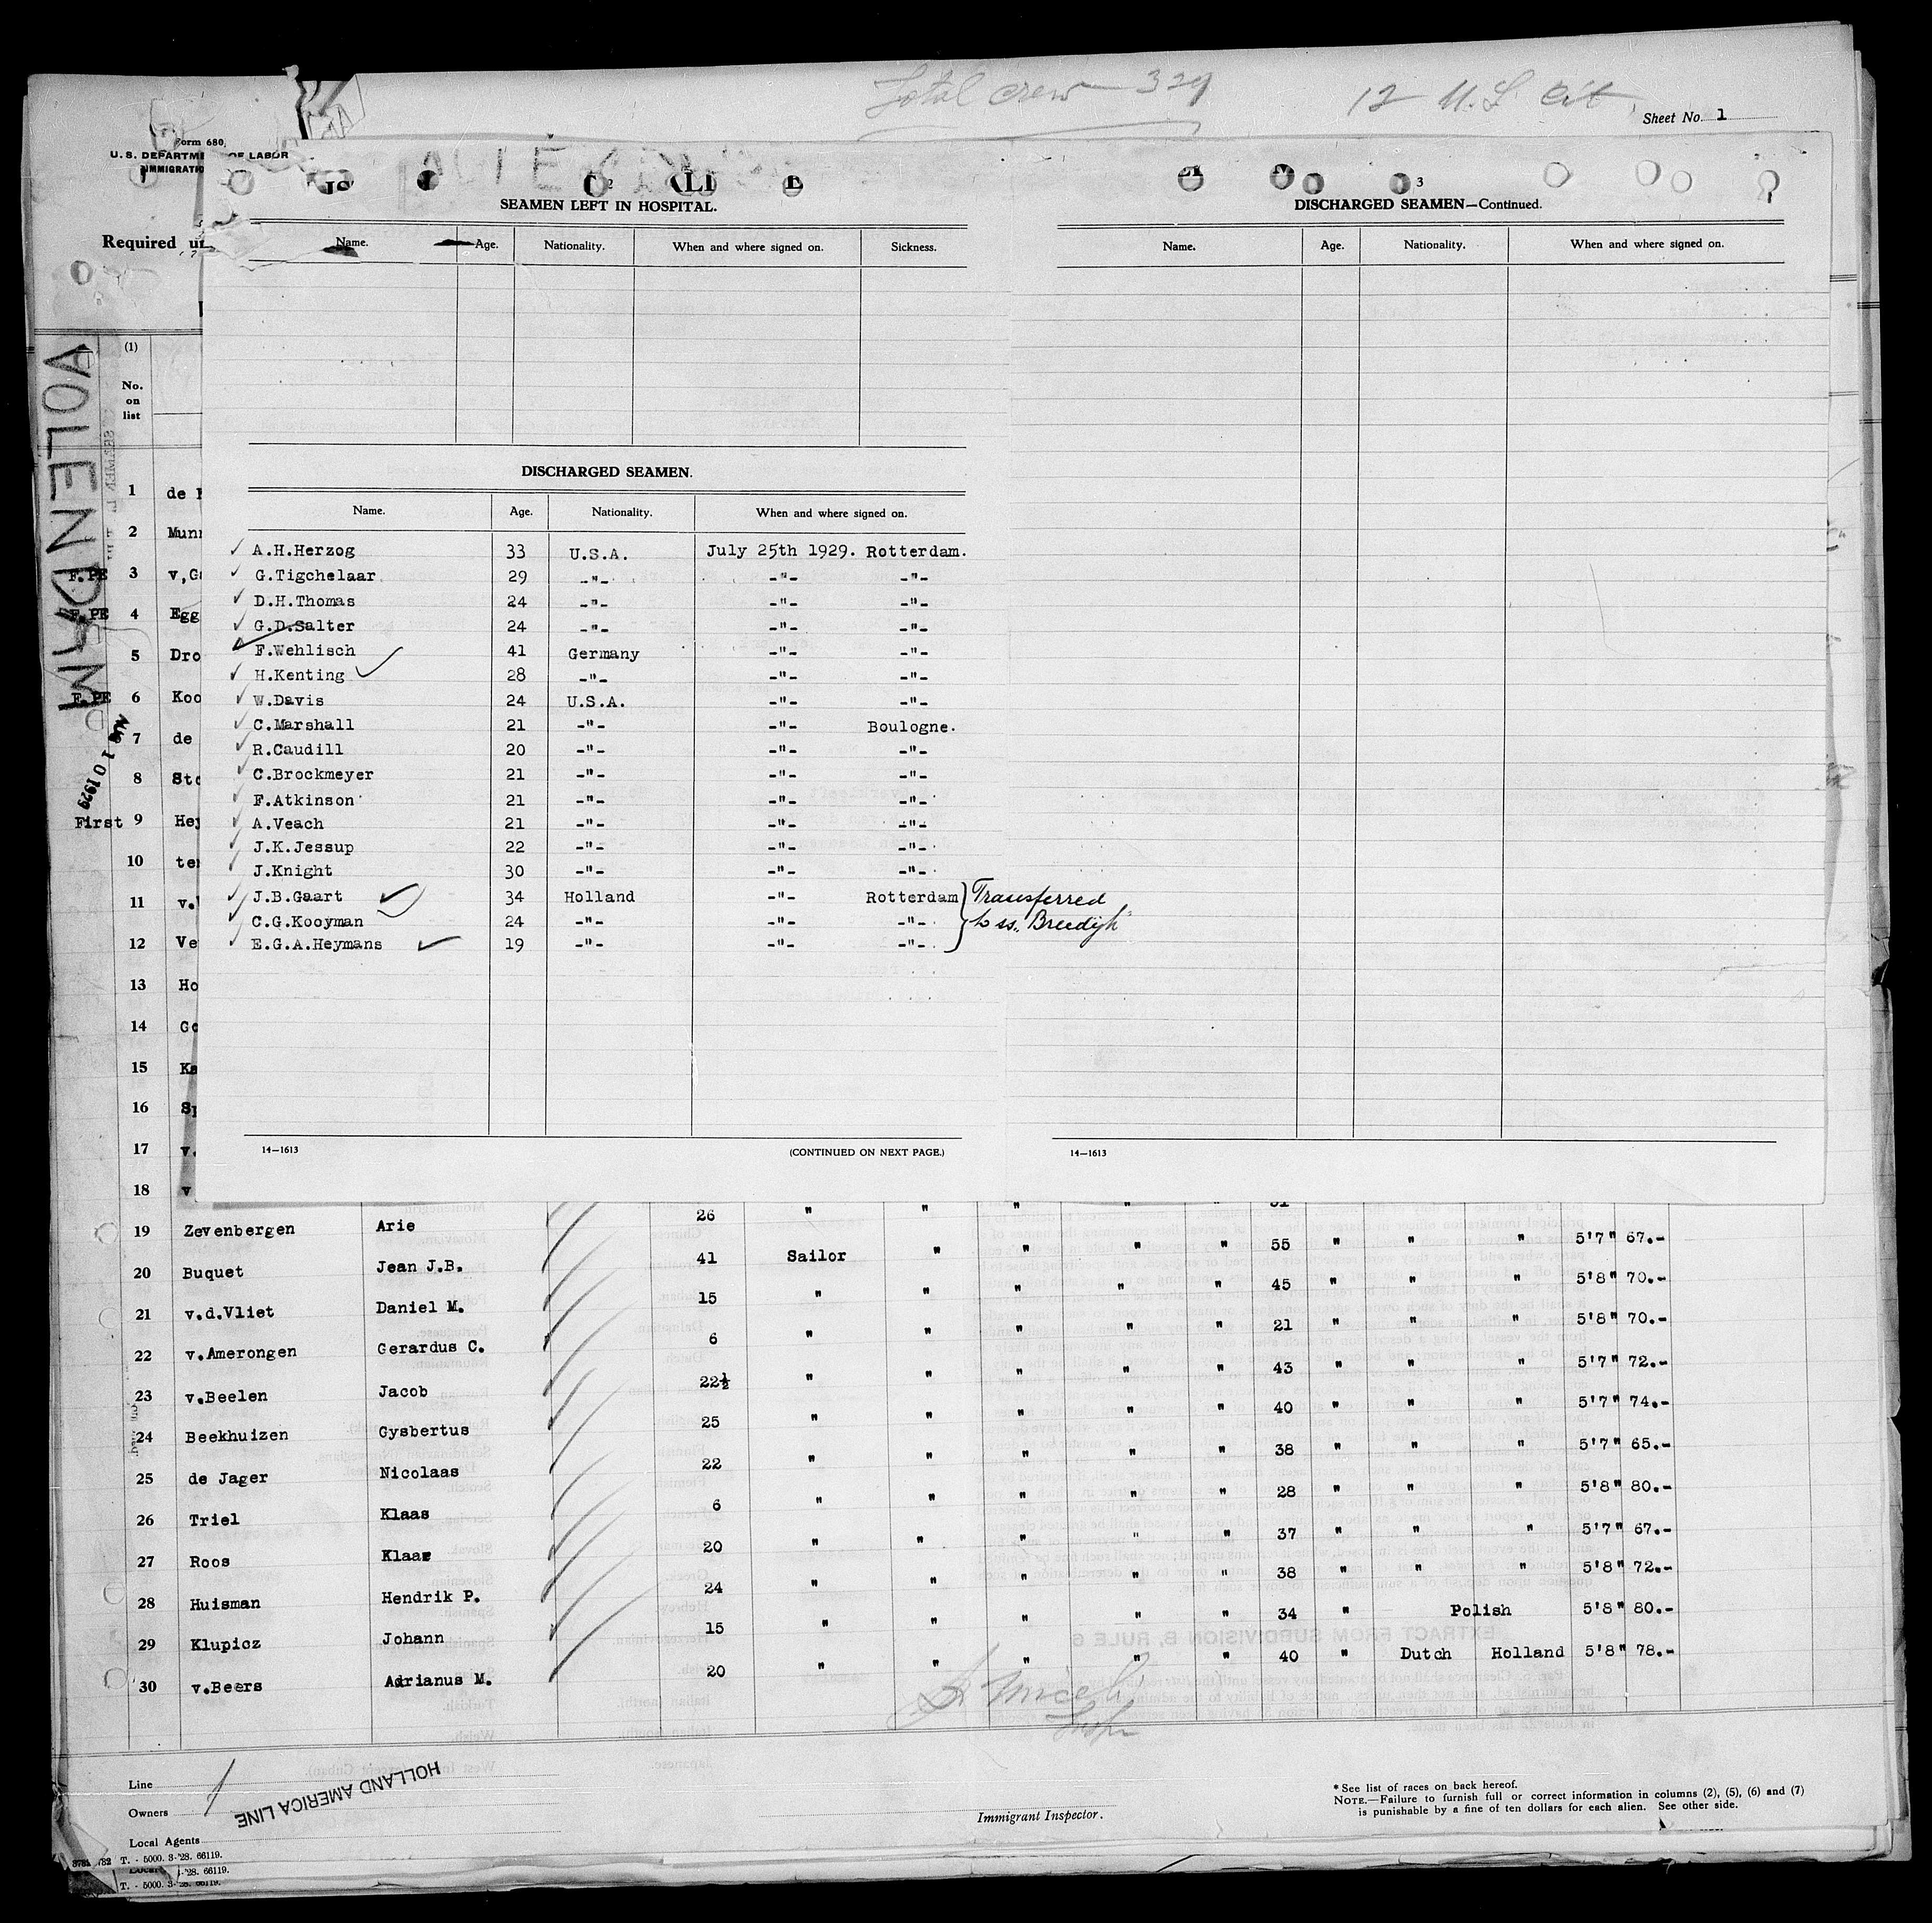 Total crew - 329
12 U.S. Cit
Sheet No. 1
Form 680,
U. S. DEPARTME OF LABOR
IMMIGRATIO
Required un
VOLENDAM
AUG 10 1929
(1)
No.
on
list
2
SEAMEN LEFT IN HOSPITAL.
Name. Age. Nationality. When and where signed on. Sickness.
3
DISCHARGED SEAMEN—Continued.
Name. Age. Nationality. When and where signed on.
DISCHARGED SEAMEN.
Name. Age. Nationality. When and where signed on.
A.H.Herzog 33 U.S.A. July 25th 1929. Rotterdam.
G.Tigchelaar 29 -"- -"- -"-
D.H.Thomas 24 -"- -"- -"-
G.D.Salter 24 -"- -"- -"-
F.Wehlisch 41 Germany -"- -"-
H.Kenting 28 -"- -"- -"-
W.Davis 24 U.S.A. -"- -"-
C.Marshall 21 -"- -"- Boulogne.
R.Caudill 20 -"- -"- -"-
C.Brockmeyer 21 -"- -"- -"-
F.Atkinson 21 -"- -"- -"-
A.Veach 21 -"- -"- -"-
J.K.Jessup 22 -"- -"- -"-
J.Knight 30 -"- -"- -"-
J.B.Gaart 34 Holland -"- Rotterdam } Transferred
C.G.Kooyman 24 -"- -"- -"- to ss. Breedijk
E.G.A.Heymans 19 -"- -"- -"-
14—1613 (CONTINUED ON NEXT PAGE.)
14—1613
1 de
2 Mun
F.PE 3 v,G
F.PE 4 Egg
5 Dro
F.PE 6 Koo
7 de
8 Sto
First 9 Hey
10 te
11 v.
12 Ve
13 Ho
14 Go
15 Ka
16 Sp
17 v.
18 v
19 Zevenbergen Arie 26 " " " " "
20 Buquet Jean J.B. 41 Sailor " " " " 55 " " " 5'7" 67.-
21 v.d.Vliet Daniel M. 15 " " " " " 45 " " " 5'8" 70.-
22 v.Amerongen Gerardus C. 6 " " " " " 21 " " " 5'8" 70.-
23 v.Beelen Jacob 22½ " " " " " 43 " " " 5'7" 72.-
24 Beekhuizen Gysbertus 25 " " " " " 40 " " " 5'7" 74.-
25 de Jager Nicolaas 22 " " " " " 38 " " " 5'7" 65.-
26 Triel Klaas 6 " " " " " 28 " " " 5'8" 80.-
27 Roos Klaas 20 " " " " " 37 " " " 5'7" 67.-
28 Huisman Hendrik P. 24 " " " " " 38 " " " 5'8" 72.-
29 Klupicz Johann 15 " " " " " 34 " Polish 5'8" 80.-
30 v.Beers Adrianus M. 20 " " " " " 40 " Dutch Holland 5'8" 78.-
Line
Owners
HOLLAND AMERICA LINE
Local Agents
Immigrant Inspector.
* See list of races on back hereof.
NOTE.—Failure to furnish full or correct information in columns (2), (5), (6) and (7)
is punishable by a fine of ten dollars for each alien. See other side.
T. - 5000. 3-'28. 66119.
'28. 66119.
T. - 5000. 3-'28. 66119.